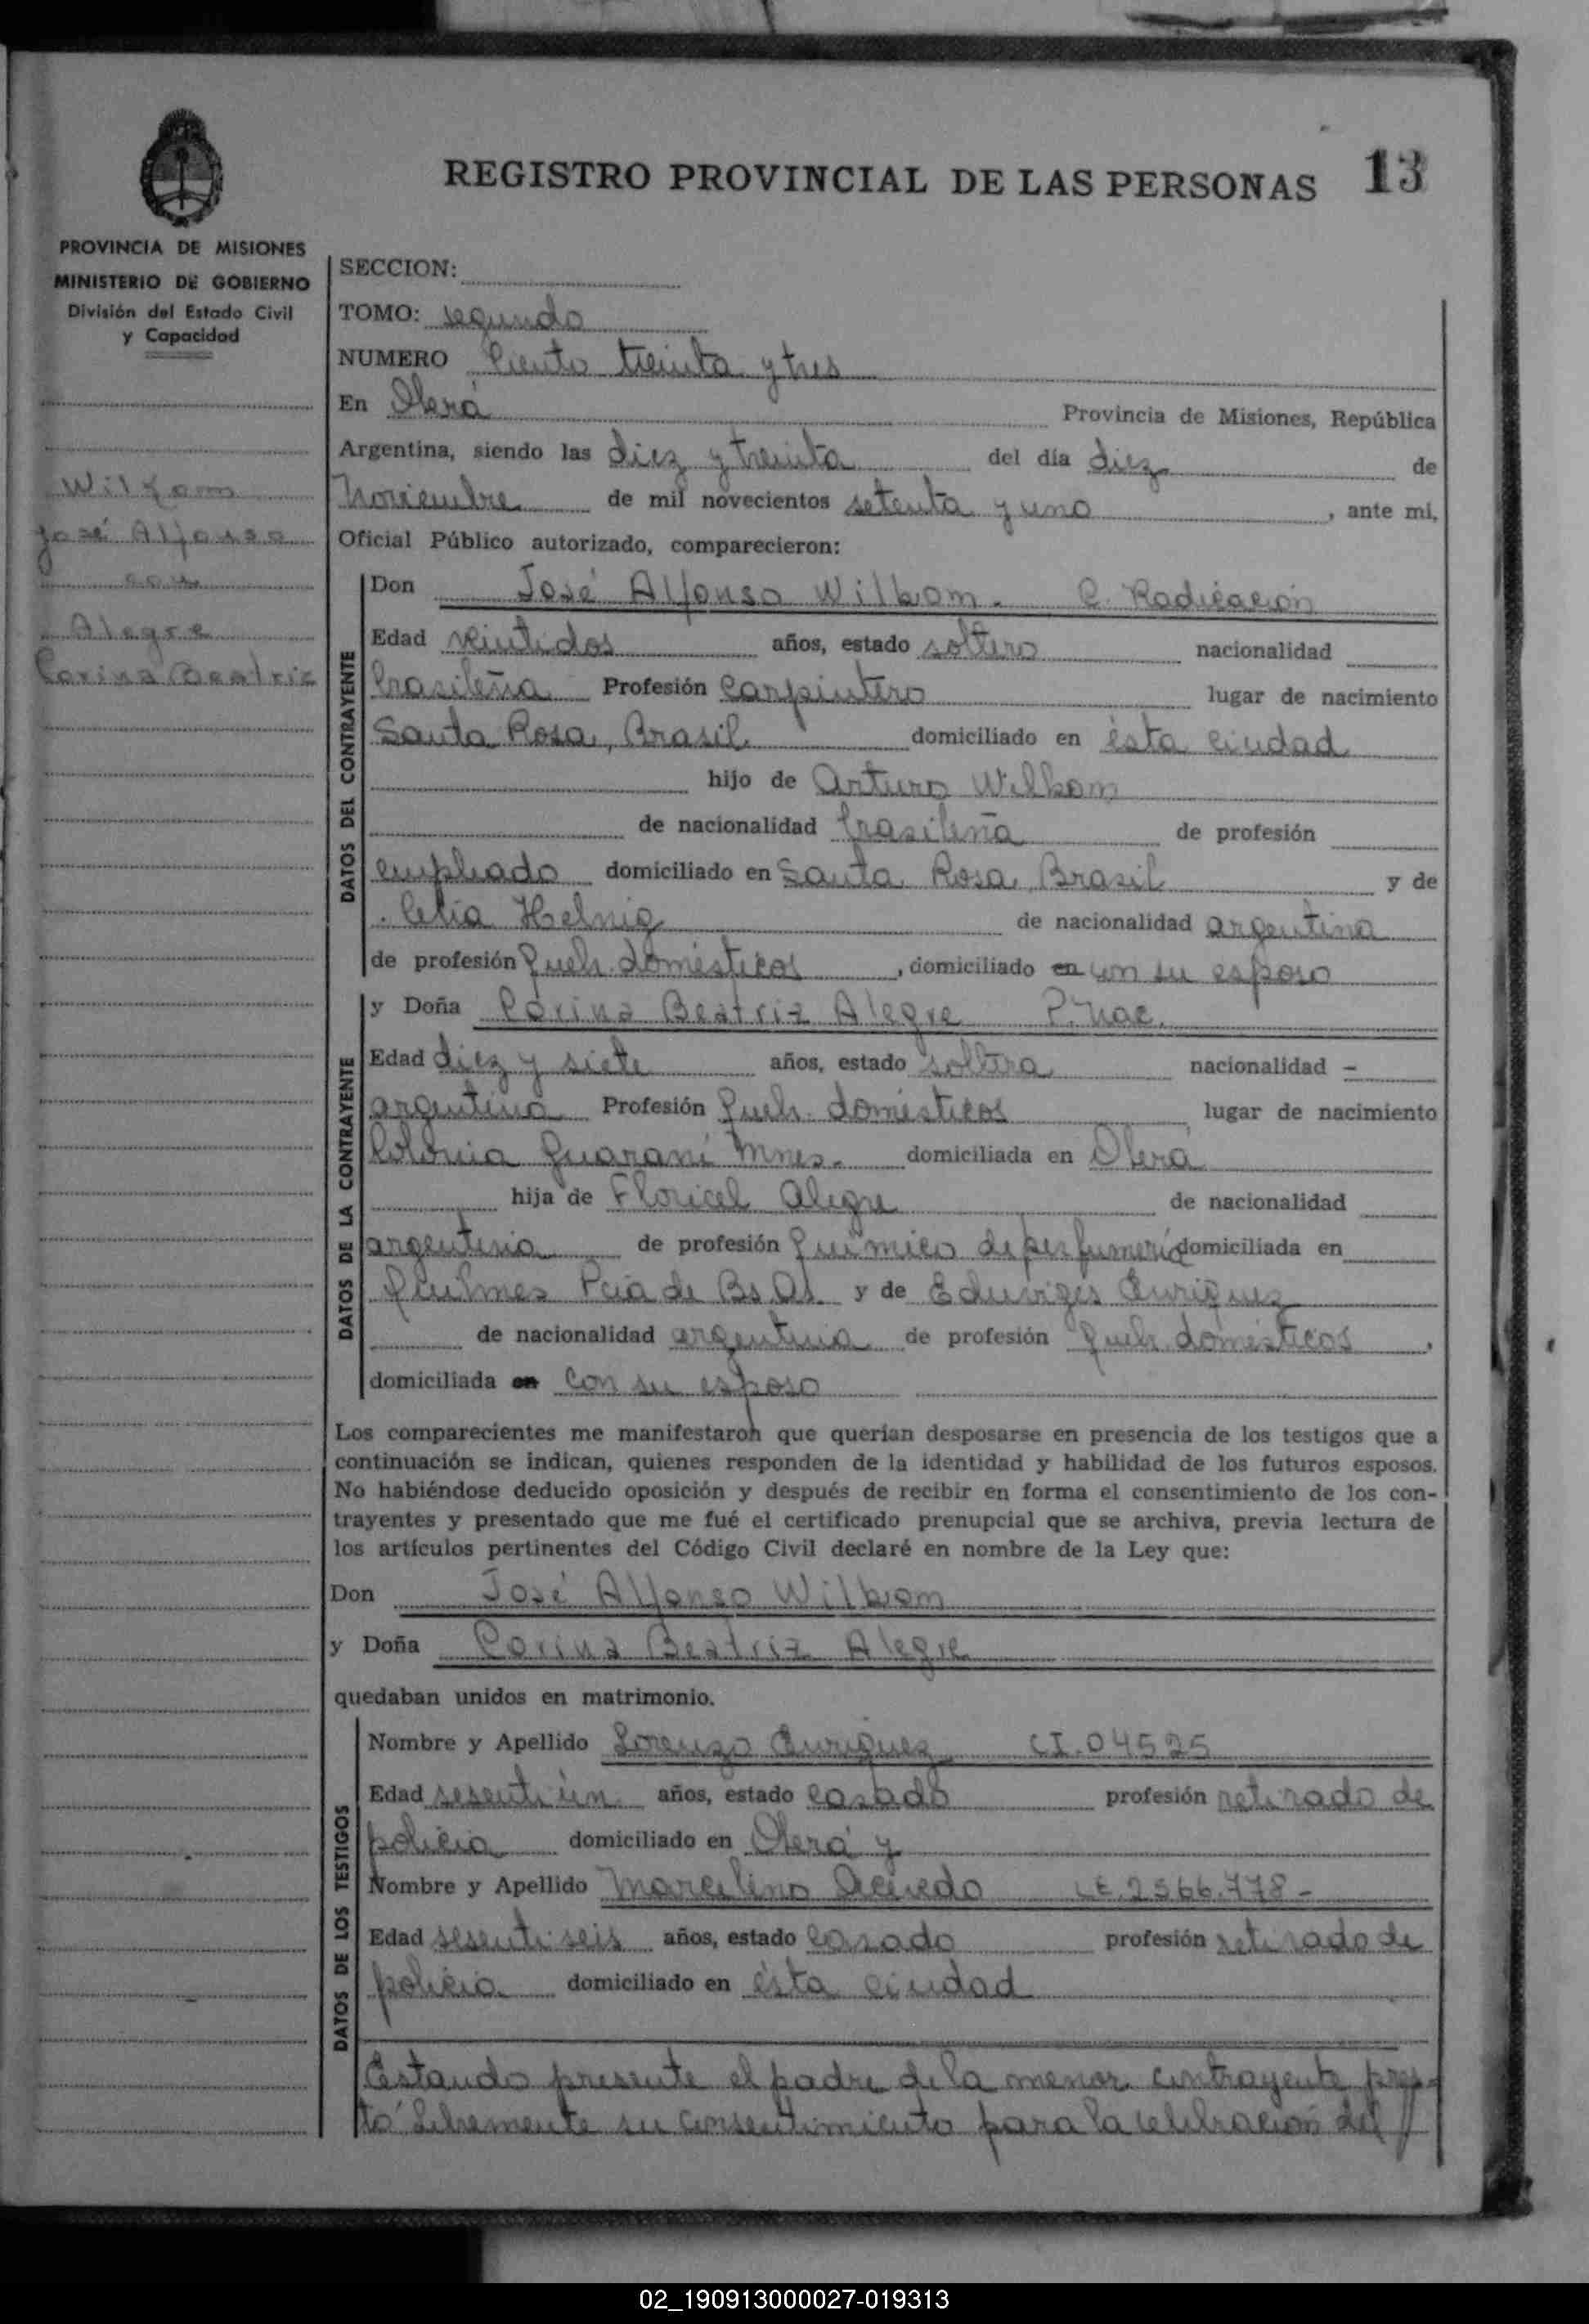 REGISTRO PROVINCIAL DE LAS PERSONAS 13
PROVINCIA DE MISIONES
MINISTERIO DE GOBIERNO
División del Estado Civil
y Capacidad
Wilkom
José Alfonso
con
Alegre
Corina Beatriz
SECCION:
TOMO: segundo
NUMERO Ciento treinta y tres
En Oberá Provincia de Misiones, República
Argentina, siendo las diez y treinta del día diez de
Noviembre de mil novecientos setenta y uno, ante mi,
Oficial Público autorizado, comparecieron:
DATOS DEL CONTRAYENTE
Don José Alfonso Wilkom. C. Radicación
Edad veintidos años, estado soltero nacionalidad
brasileña Profesión Carpintero lugar de nacimiento
Santa Rosa, Brasil domiciliado en ésta ciudad
hijo de Arturo Wilkom
de nacionalidad brasileña de profesión
empleado domiciliado en Santa Rosa, Brasil y de
Celia Helnig de nacionalidad argentina
de profesión Queh. domésticos, domiciliado en con su esposo
DATOS DE LA CONTRAYENTE
y Doña Corina Beatriz Alegre P. Nac.
Edad diez y siete años, estado soltera nacionalidad -
argentina Profesión Queh. domésticos lugar de nacimiento
Colonia Guaraní Mnes. domiciliada en Oberá
hija de Floricel Alegre de nacionalidad
argentina de profesión Químico de perfumería domiciliada en
Quilmes Pcia de Bs. As. y de Eduviges Enriquez
de nacionalidad argentina de profesión Queh. domésticos,
domiciliada en con su esposo
Los comparecientes me manifestaron que querían desposarse en presencia de los testigos que a
continuación se indican, quienes responden de la identidad y habilidad de los futuros esposos.
No habiéndose deducido oposición y después de recibir en forma el consentimiento de los con-
trayentes y presentado que me fué el certificado prenupcial que se archiva, previa lectura de
los artículos pertinentes del Código Civil declaré en nombre de la Ley que:
Don José Alfonso Wilkom
y Doña Corina Beatriz Alegre
quedaban unidos en matrimonio.
DATOS DE LOS TESTIGOS
Nombre y Apellido Lorenzo Enriquez CI. 04525
Edad sesentiún años, estado casado profesión retirado de
policia domiciliado en Oberá y
Nombre y Apellido Marcelino Acevedo LE. 2566.778-
Edad sesentiseis años, estado casado profesión retirado de
policia domiciliado en ésta ciudad
Estando presente el padre de la menor contrayente pres-
tó libremente su consentimiento para la celebración del
02_190913000027-019313